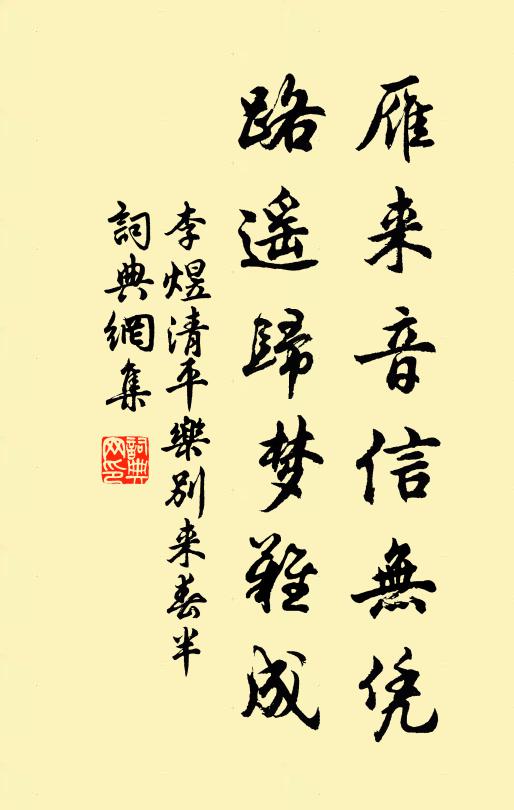 雁来音信無凭
路遥歸梦難成
李煜清平樂別来春半
詞典網集
詞典网印